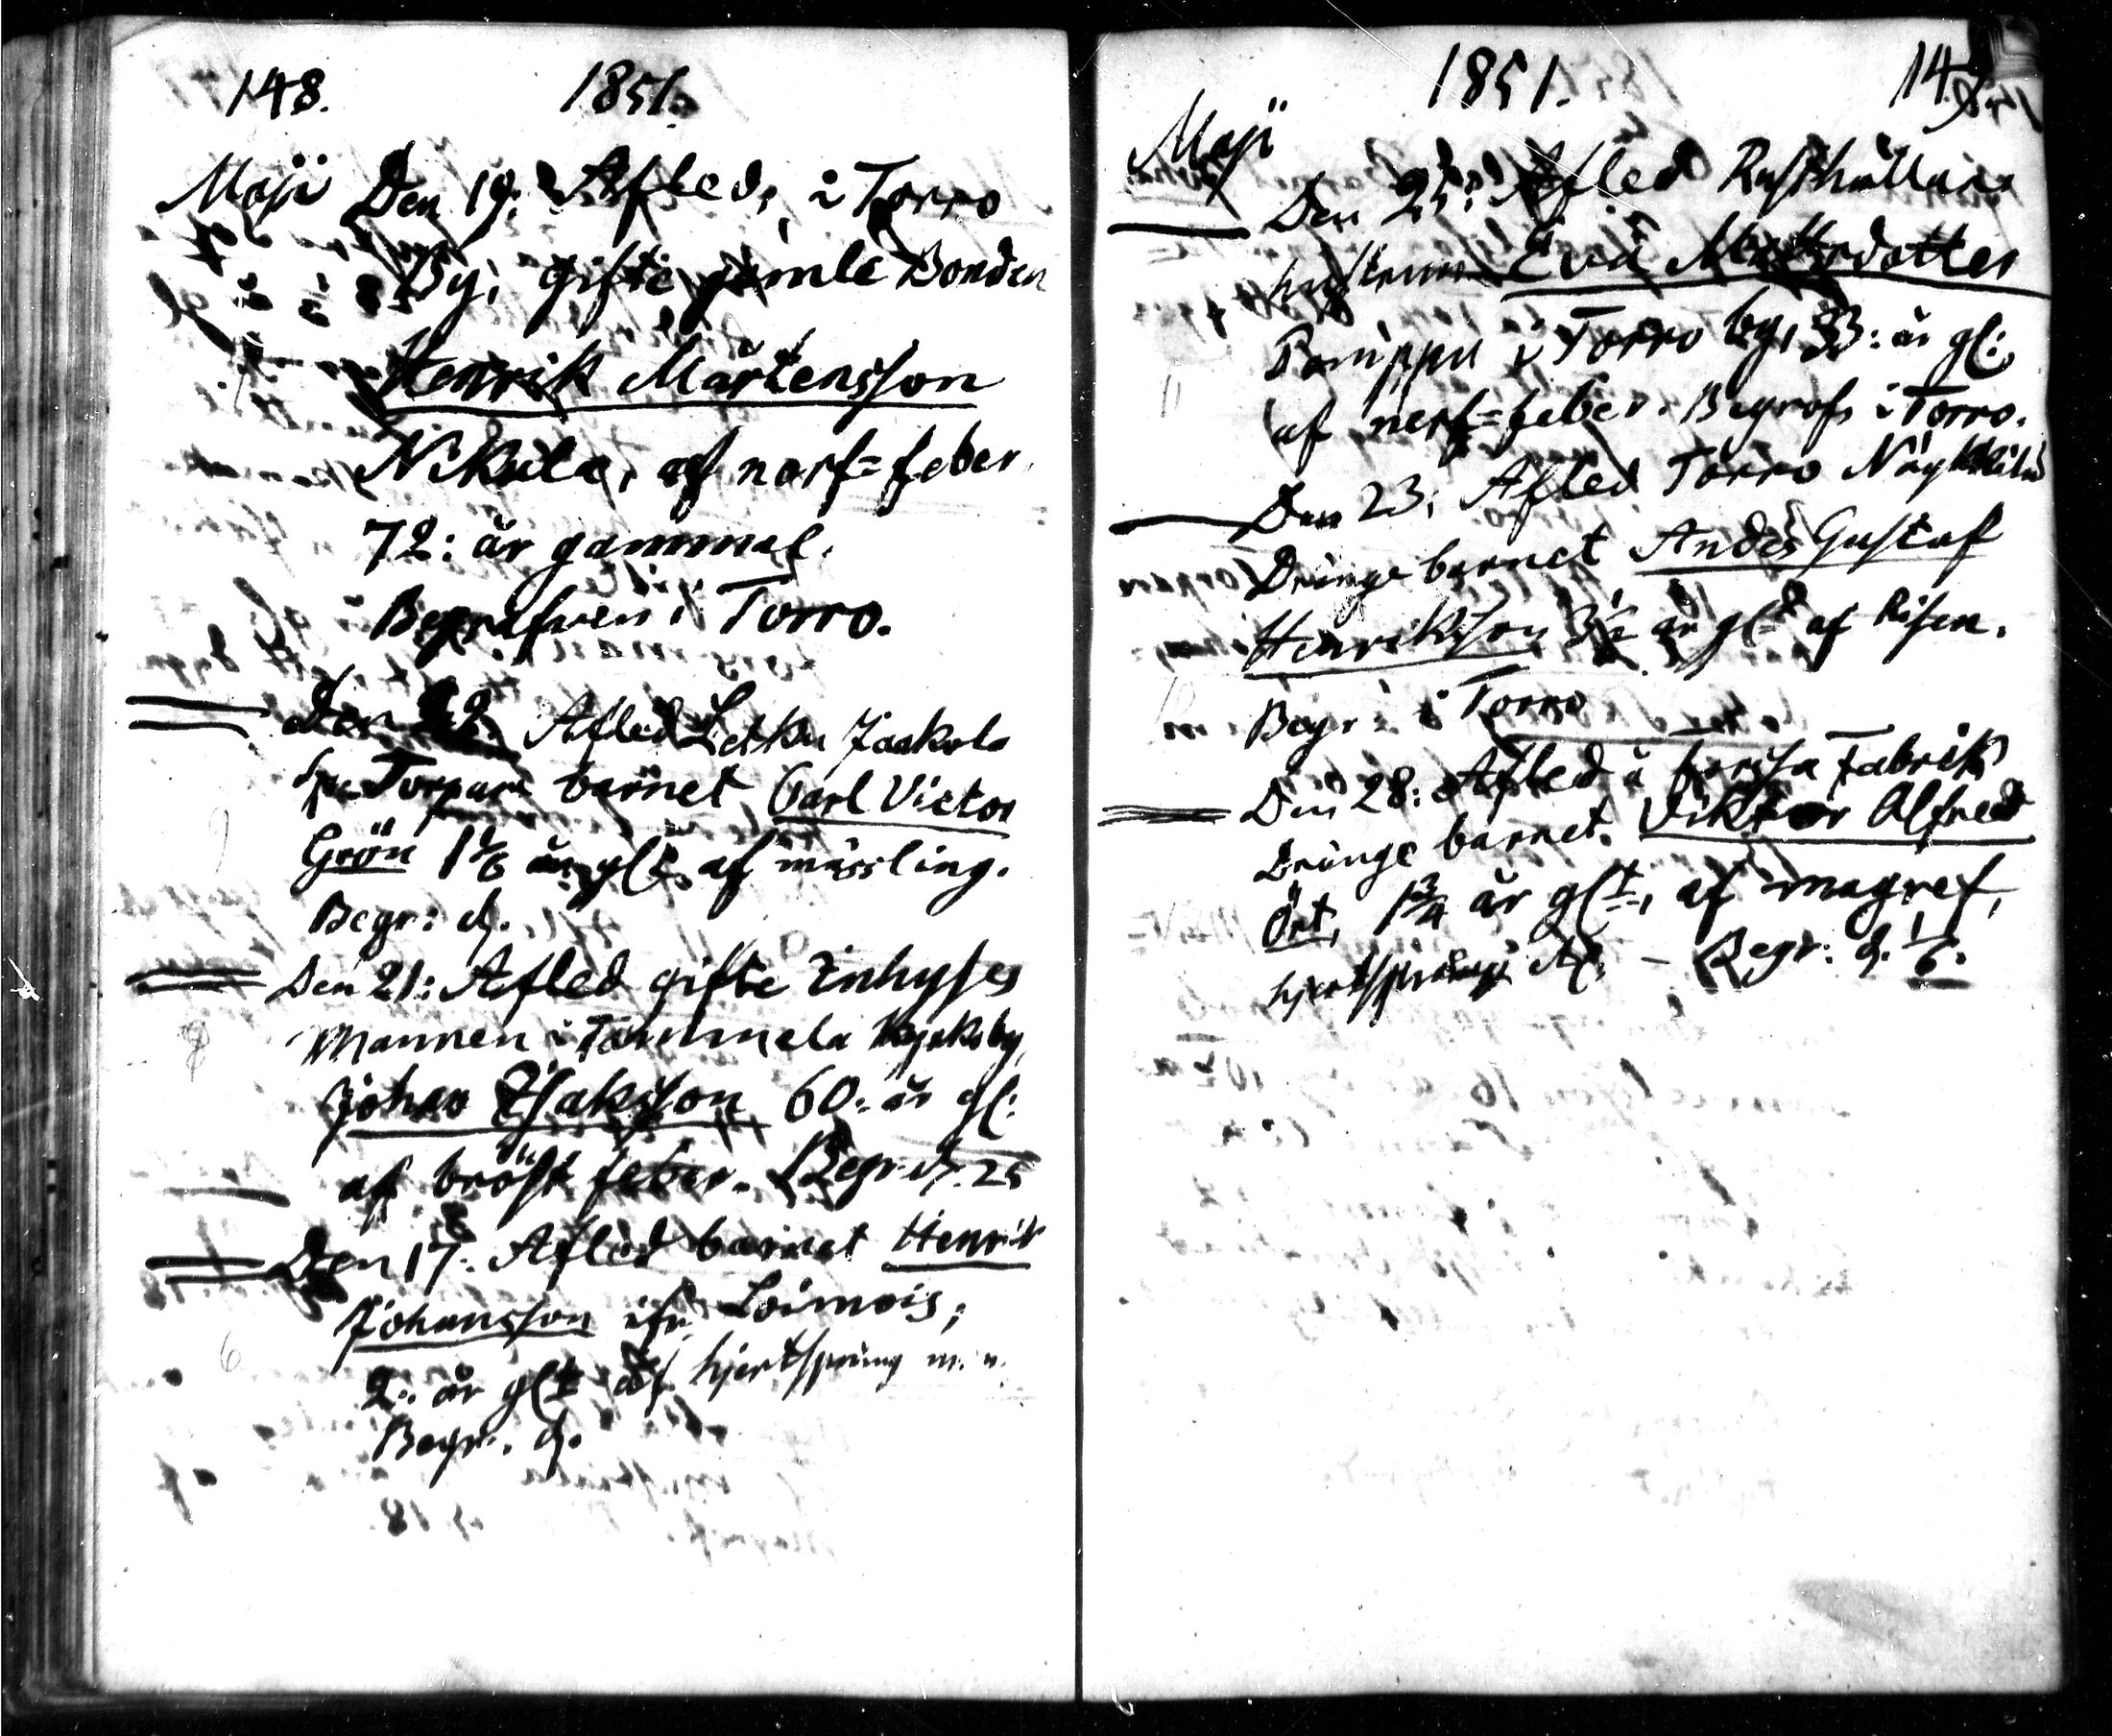 148. 1851.
Maji Den 19: Afled, i Torro
By, gifte gamle Bonden
Henrik Mårtensson
Nikula, af nerf=feber
72: år gammal.
Begrafven i Torro.
Den Afled Letku Jaakola
Torpare barnet Carl Victor
Grön 1 1/6 år glt af mässling.
Begr: d.
Den 21: Afled gifte Inhyses
Mannen i Tammela Kyrkoby
Johan Isaksson 60: år gl:
af bröst feber. Begr. d. 25
Den 17: Afled barnet Henrik
Johansson ifr. Loimois;
2: år glt af hjertsprång
Begr. d.
1851. 149.
Maji
Den 25: Afled Rusthållare
hustrun Eva Mattsdotter
Pamppu i Torro by, 33: år gl:
af nerf=feber. Begrafs i Torro.
Den 23; Afled Torro
Drängebarnet Anders Gustaf
Henriksson 3 1/2 år glt af Risen.
Begr: i Torro
Den 28: Afled å Forssa Fabrik
Drängebarnet. Viktor Alfred
Ört, 1 3/4 år glt, af magref,
hjertsprång &c, – Begr: d. 1/6.